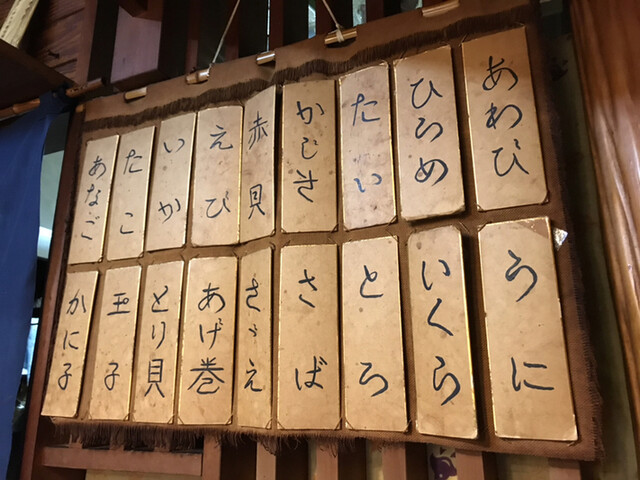 あわび
ひらめ
たい
かじき
赤貝
えび
いか
たこ
あなご
うに
いくら
とろ
さば
さゞえ
あげ巻
とり貝
玉子
かに子